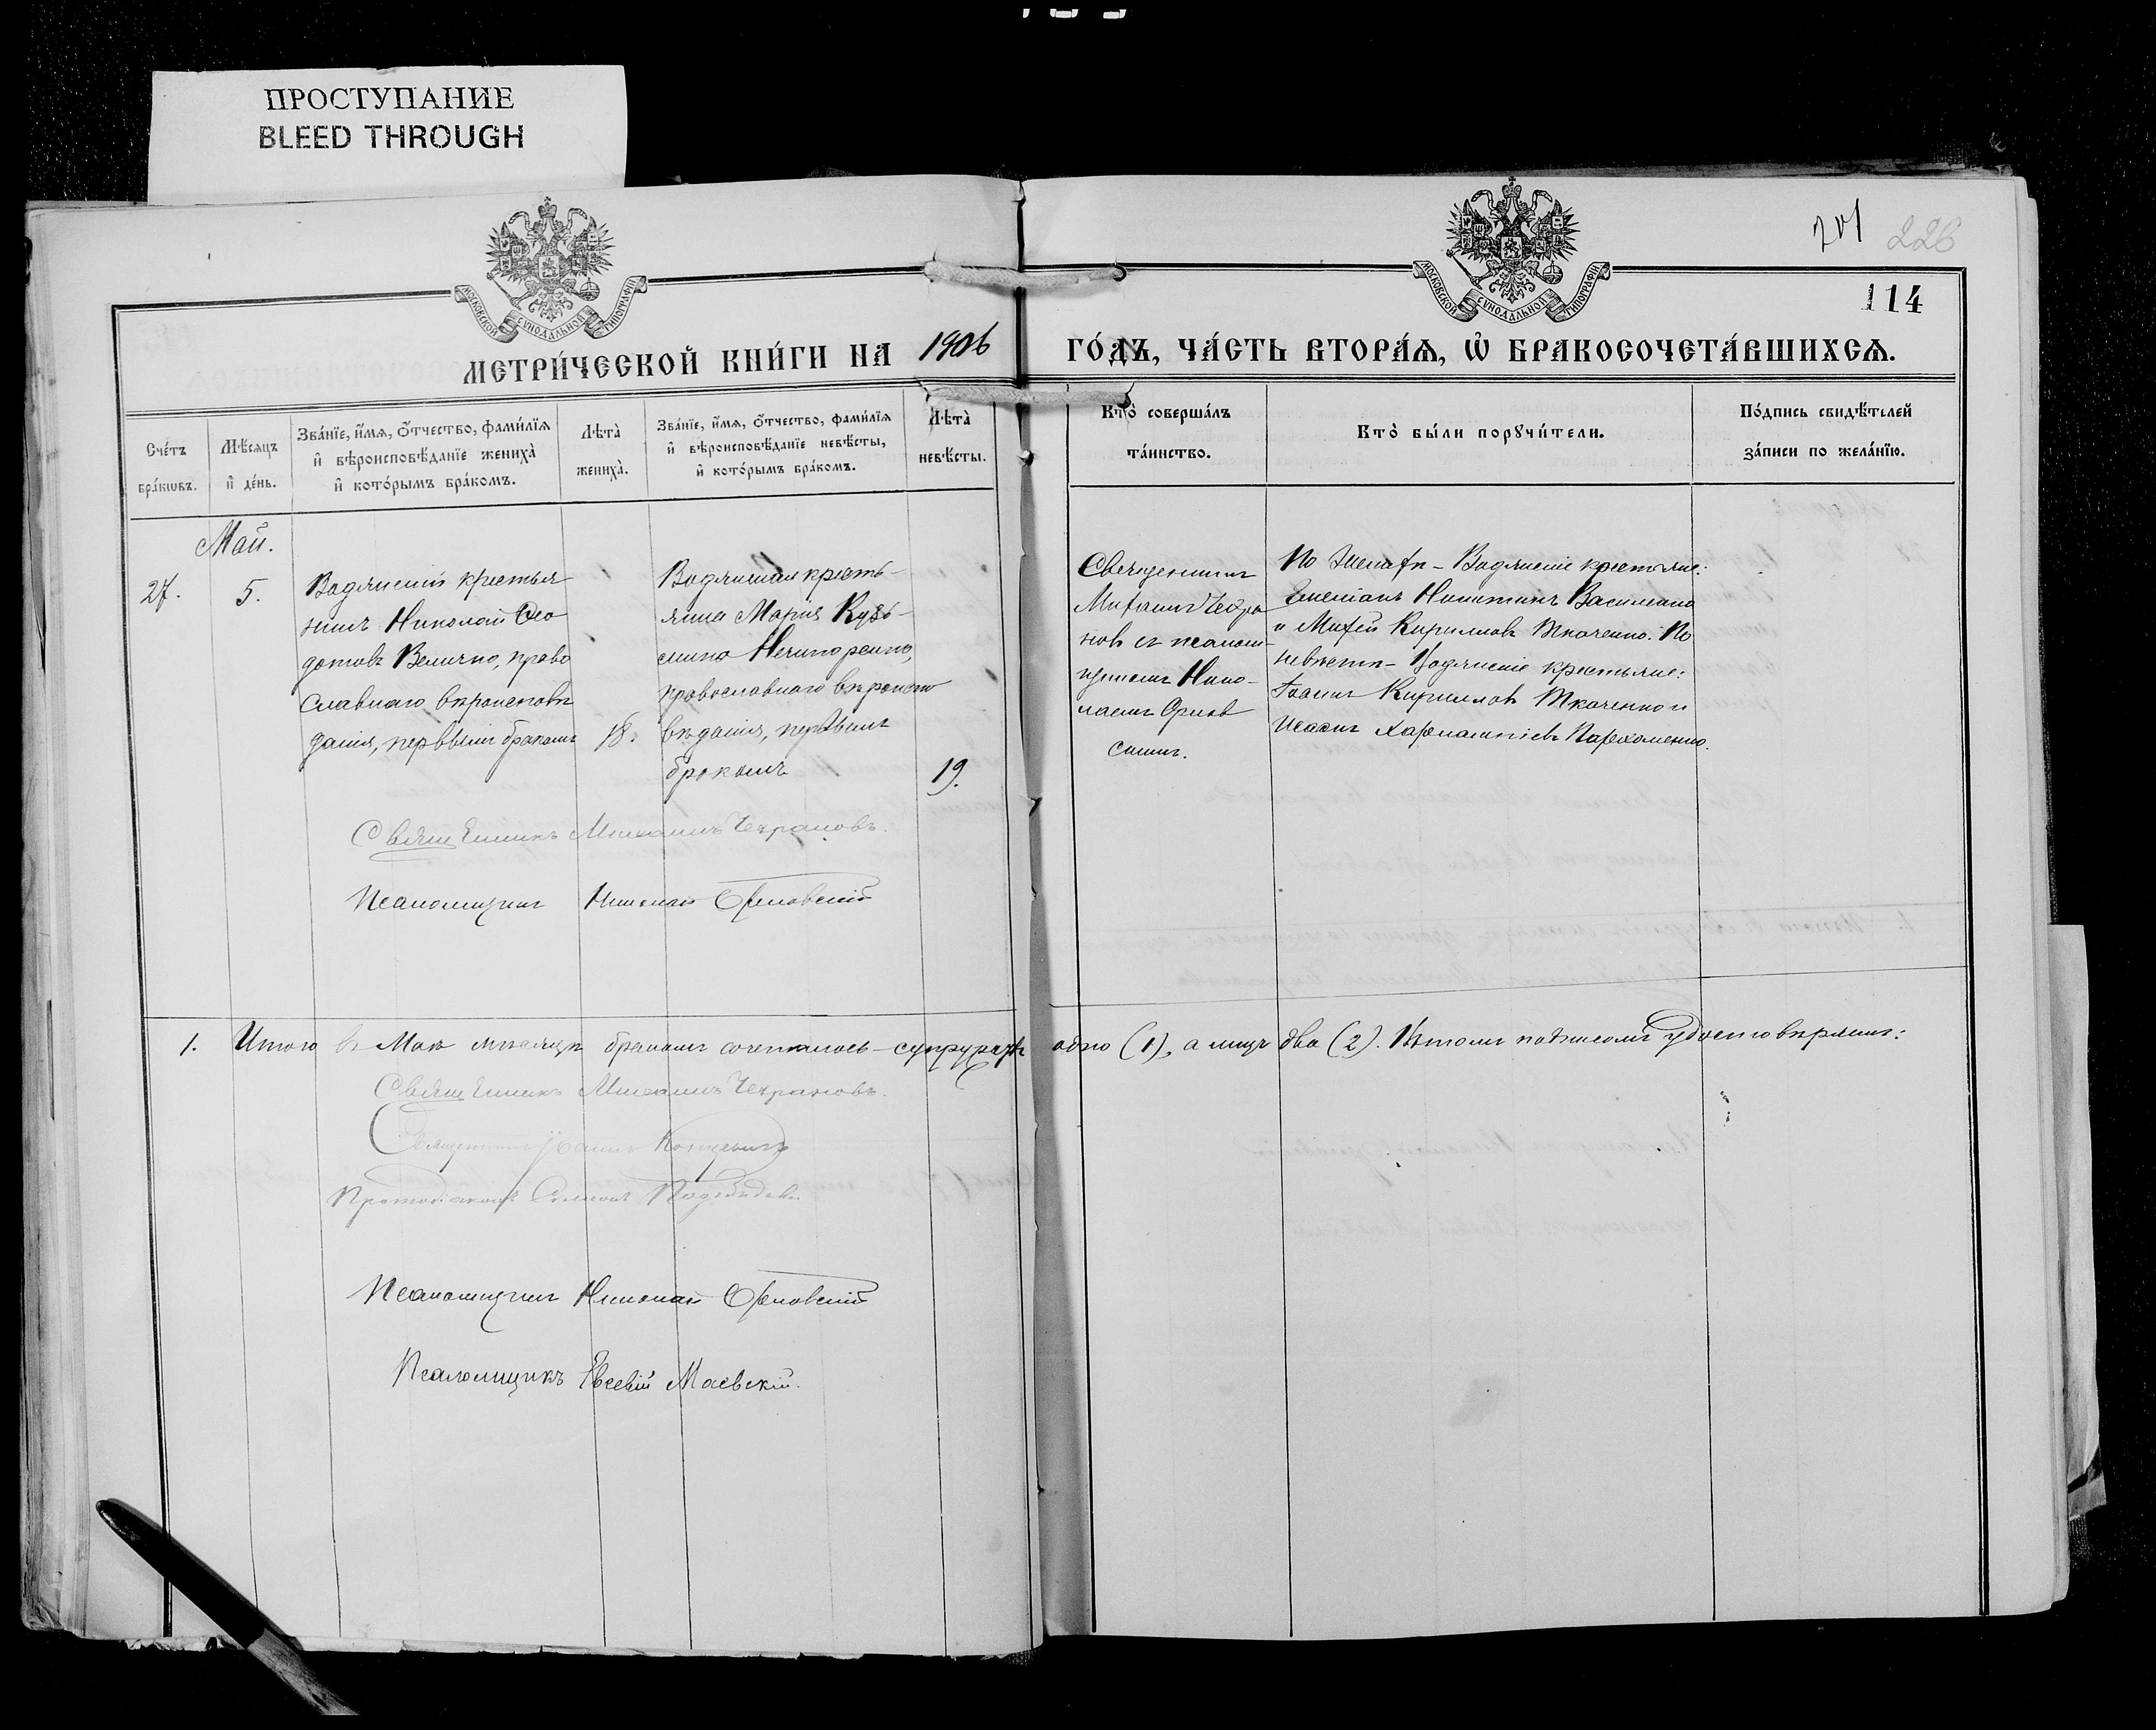 ПРОСТУПАНИЕ
BLEED THROUGH
МОСКОВСКОЙ СѴНОДАЛЬНОЙ ТИПОГРАФІИ
МОСКОВСКОЙ СѴНОДАЛЬНОЙ ТИПОГРАФІИ
201 226
114
МЕТРИ́ЧЕСКОЙ КНИ́ГИ НА 1906 ГО́ДЪ, ЧА́СТЬ ВТОРА́Ѧ, Ѡ҆ БРАКОСОЧЕТА́ВШИХСѦ.
Сче́тъ
бра́кѡвъ.
Мѣ́сѧцъ
и҆ де́нь.
Зва́нїе, и҆́мѧ, ѻ҆́тчество, фами́лїѧ
и҆ вѣроисповѣ́данїе жениха̀
и҆ кото́рымъ бра́комъ.
Лѣ́та̀
жениха̀.
Зва́нїе, и҆́мѧ, ѻ҆́тчество, фами́лїѧ
и҆ вѣроисповѣ́данїе невѣ́сты,
и҆ кото́рымъ бра́комъ.
Лѣ́та̀
невѣ́сты.
Кто̀ соверша́лъ
та́инство.
Кто̀ бы́ли порꙋчи́тели.
По́дпись свидѣ́телей
за́писи по жела́нїю.
Май.
27.
5.
Водянскій крестья
нинъ Николай Ѳео
дотовъ Величко, право
славнаго вѣроисповѣ
данія, первымъ бракомъ
18.
Водянская кресть-
янка Марія Кузь-
мина Нечипоренко,
православнаго вѣроиспо
вѣданія, первымъ
бракомъ
19.
Священникъ
Михаилъ Чехра
новъ съ псалом-
щикомъ Нико-
лаемъ Орлов
скимъ.
По женихѣ - Водянскіе крестьяне:
Емеліанъ Никитинъ Василенко
и Михей Кирилловъ Ткаченко. По
невѣстѣ - Водянскіе крестьяне:
Іоаннъ Кирилловъ Ткаченко и
Исакъ Харлампіевъ Пархоменко.
Священникъ Михаилъ Чехрановъ.
Псаломщикъ Николай Орловскій
1. Итого въ Маѣ мѣсяцѣ бракомъ сочеталось - супружествъ одно (1), а лицъ два (2). Въ томъ подписомъ удостовѣряемъ:
Священникъ Михаилъ Чехрановъ.
Священникъ Іоаннъ
Протодіаконъ
Псаломщикъ Николай Орловскій
Псаломщикъ Евсевій Маевскій.